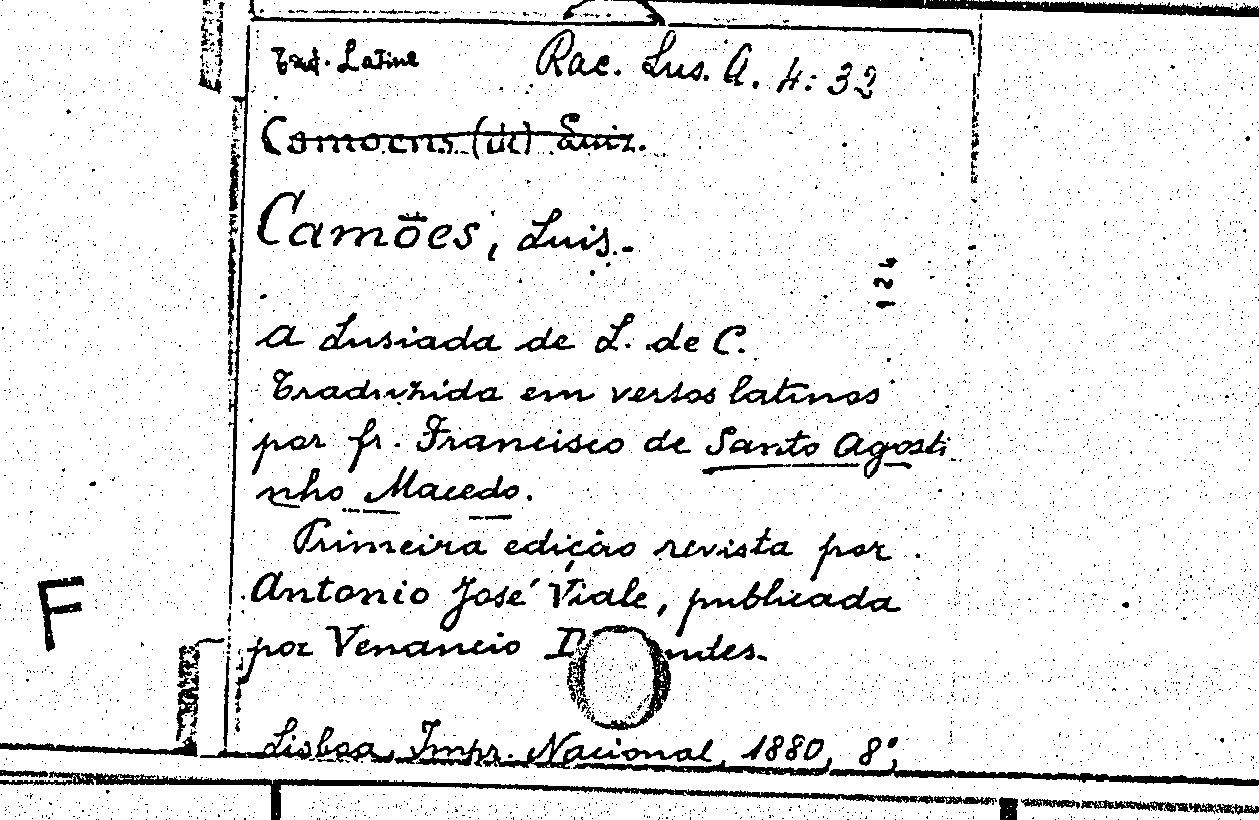 Trad. Latine
Rac. Lus. A. 4: 32
Camoens (de) Luiz.
Camões, Luis.-
124
A Lusiada de L. de C.
Traduzida em versos latinos
por fr. Francisco de Santo Agosti
nho Macedo.
Primeira edição revista por
Antonio José Viale, publicada
por Venancio
Lisboa, Impr. Nacional, 1880, 8º,
F